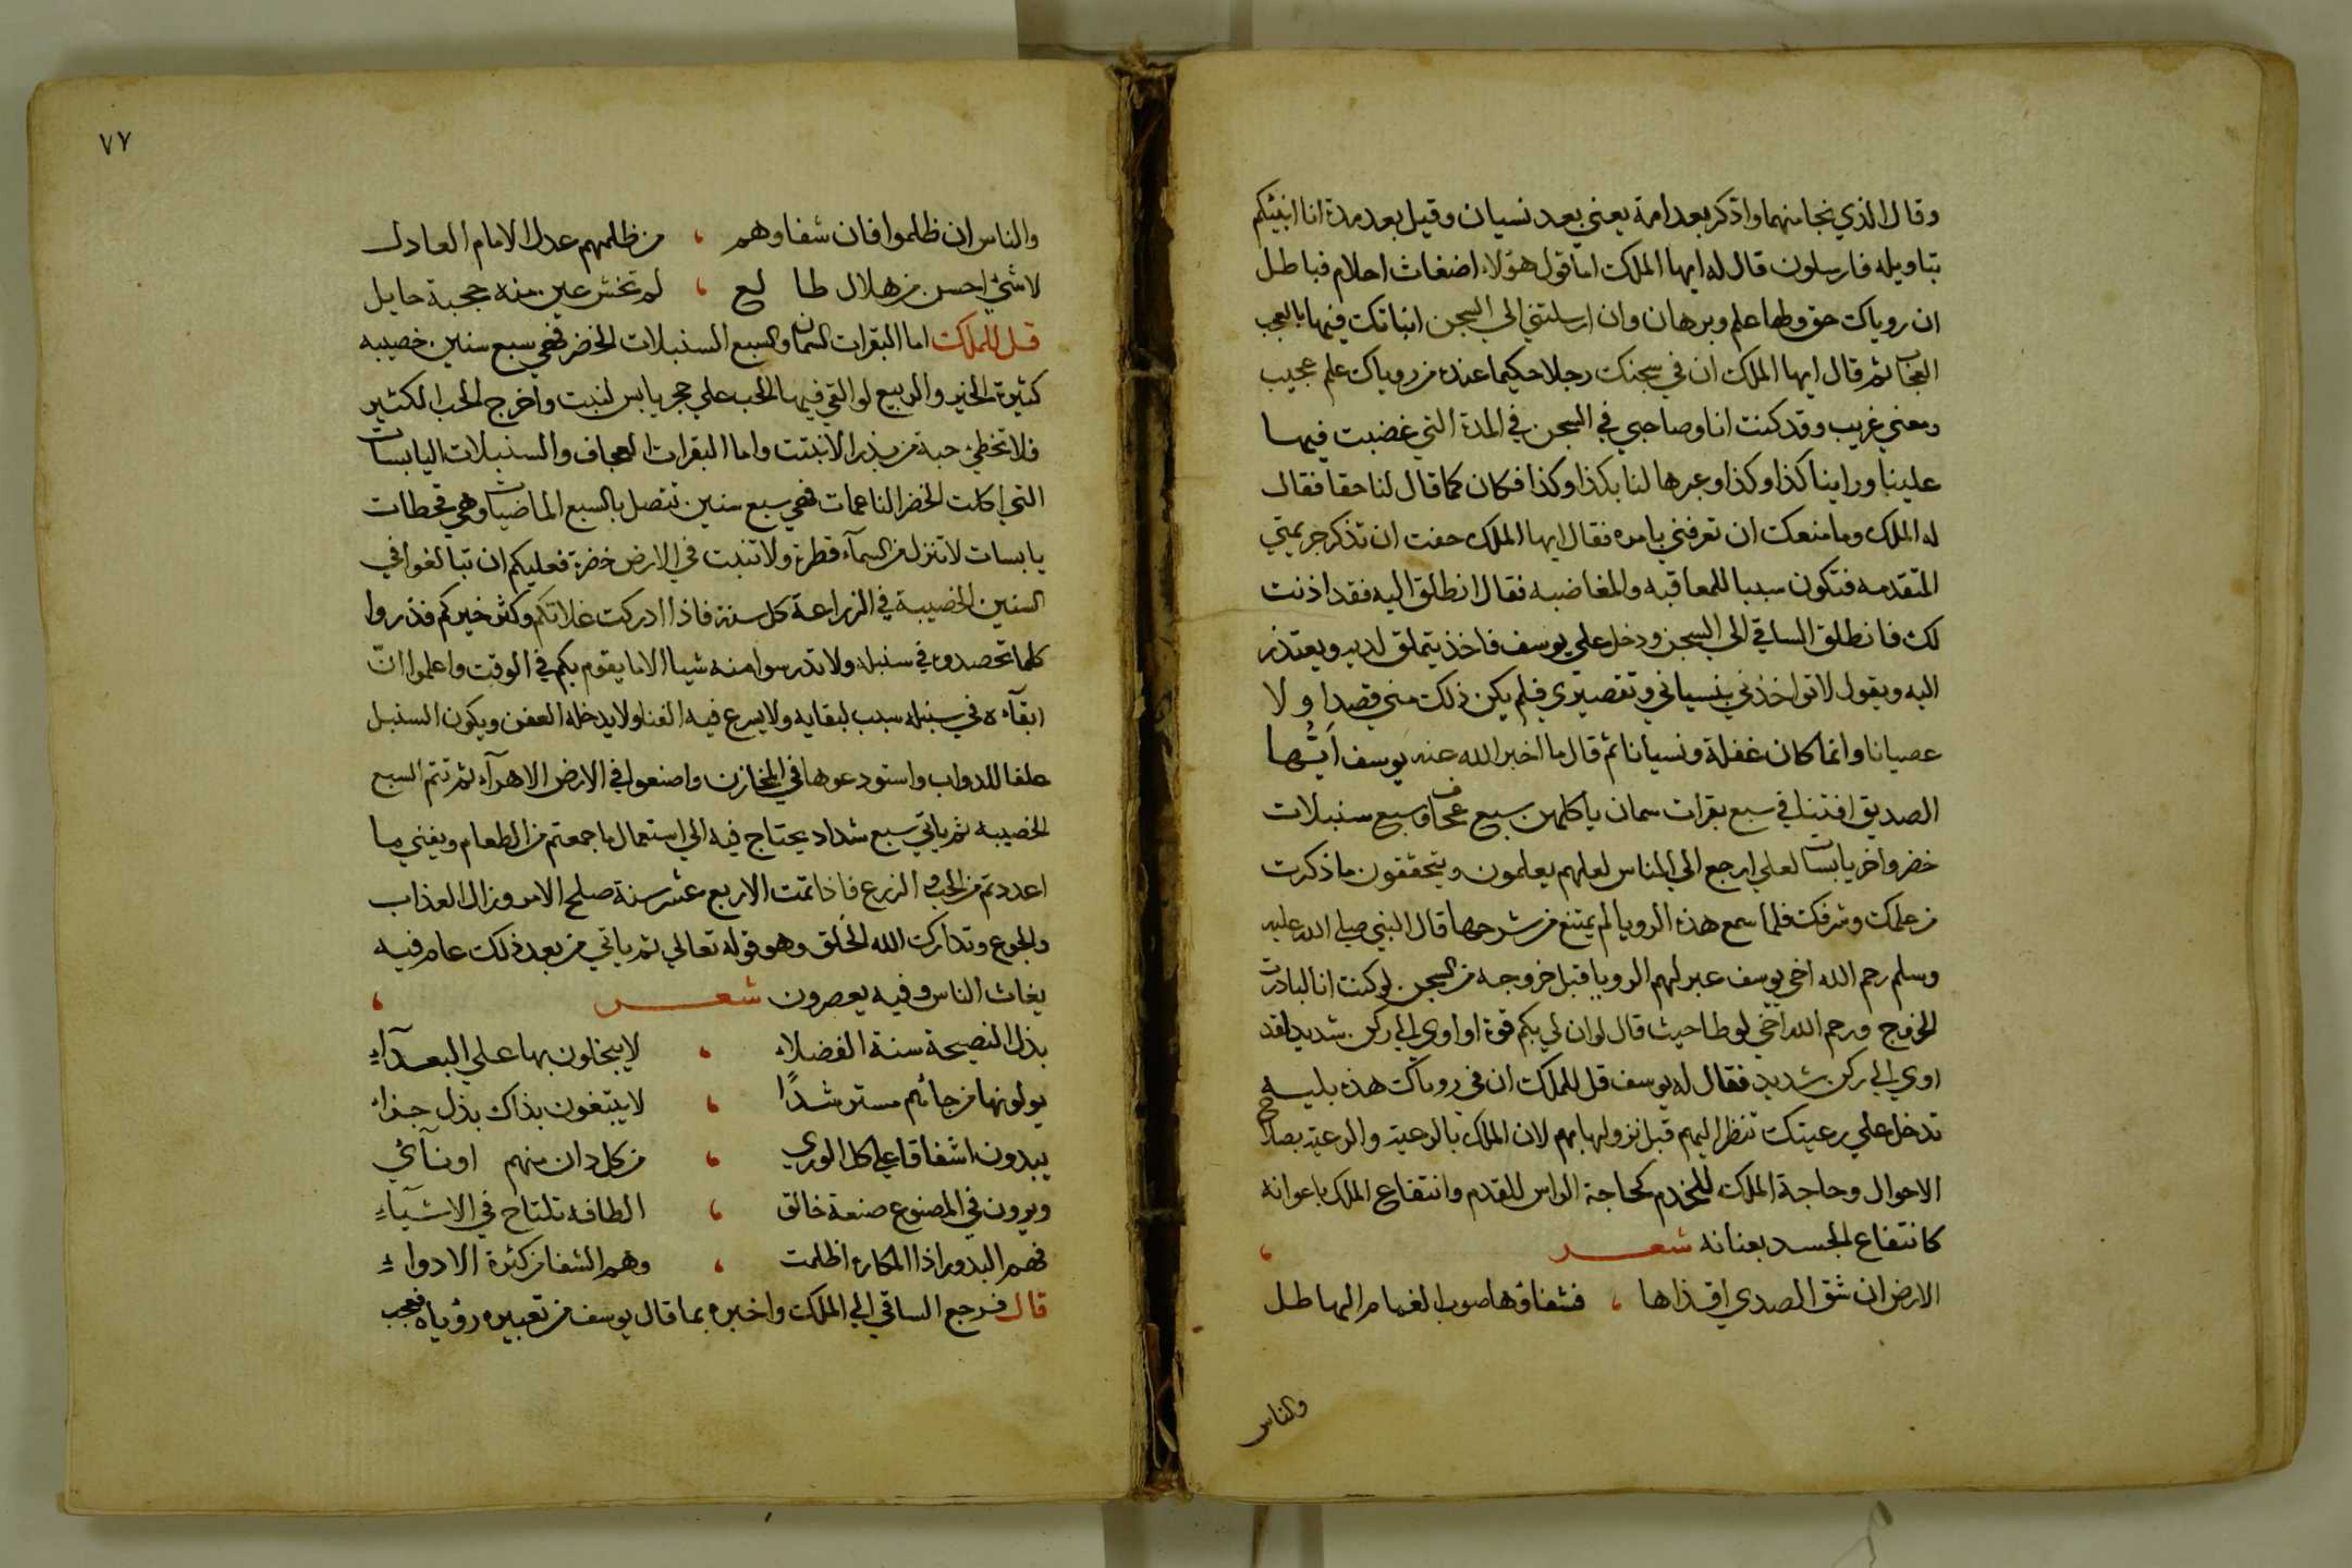 وقال الذي نجا منهما وادكر بعد امة يعني بعد نسيان وقيل بعد مدة انا انبئكم
بتاويله فارسلون قال له ايها الملك اما قول هؤلاء اضغاث احلام فباطل
ان روياك حق ولها علم وبرهان وان ارسلتني الي السجن انباتك فيها بالعجب
العجاب ثم قال ايها الملك ان في سجنك رجلا حكيما عنده من روياك علم عجيب
ومعني غريب وقد كنت انا وصاحبي في السجن في المدة التي غضبت فيها
علينا وراينا كذا وكذا وعبرها لنا بكذا وكذا فكان كما قال لنا حقا فقال
له الملك وما منعك ان تعرفني بامره فقال ايها الملك خفت ان تذكر جريمتي
المتقدمه فتكون سببا للمعاقبه والمغاضبه فقال انطلق اليه فقد اذنت
لك فانطلق الساقي الي السجن ودخل علي يوسف فاخذ يتملق لديه ويعتذر
اليه ويقول لا تواخذني بنسياني وتقصيري فلم يكن ذلك مني قصدا ولا
عصيانا وانما كان غفلة ونسيانا ثم قال ما اخبر الله عنه يوسف ايُّها
الصديق افتينا في سبع بقرات سمان ياكلهن سبع عجاف وسبع سنبلات
خضر واخر يابسات لعلي ارجع الي الناس لعلهم يعلمون ويتحققون ما ذكرت
من علمك وشرفك فلما سمع هذه الرويا لم يمتنع من شرحها قال النبي صلي الله عليه
وسلم رحم الله اخي يوسف عبر لهم الرويا قبل خروجه من السجن لو كنت انا لبادرت
الخروج ورحم الله اخي لوطا حيث قال لو ان لي بكم قوة او اوي الي ركن شديد لقد
اوي الي ركن شديد فقال له يوسف قل للملك ان في روياك هذه بليه
تدخل علي رعيتك تنظر اليهم قبل نزولها بهم لان الملك بالرعية والرعية بصلاح
الاحوال وحاجة الملك للخدم كحاجة الراس للقدم وانتفاع الملك باعوانه
كانتفاع الجسد بعنانه شعر
الارض ان شق الصدي اقذاها ، فشفاؤها صوب الغمام الهاطل
والناس
٧٧
والناس ان ظلموا فان شفاوهم ، من ظلمهم عدل الامام العادل
لا شئ احسن من هلال طالع ، لم تخش عين منه حجبة حايل
قل للملك اما البقرات السمان والسبع السنبلات الخضر فهي سبع سنين خصيبه
كثيرة الخير والربيع لو القي فيها الحب علي حجر يابس لنبت واخرج الحب الكثير
فلا تخطئ حبة من بذر الا نبتت واما البقرات العجاف والسنبلات اليابسات
التي اكلت الخضر الناعمات فهي سبع سنين تتصل بالسبع الماضيات وهي قحطات
يابسات لا تنزل من السمآء قطرة ولا تنبت في الارض خضرة فعليكم ان تبالغوا في
السنين الخصيبة في الزراعة كل سنة فاذا ادركت غلاتكم وكثر خيركم فذروا
كلما تحصدون في سنبله ولا تدرسوا منه شيا الا ما يقوم بكم في الوقت واعلموا انّ
ابقآءه في سنبله سبب لبقايه ولا يسرع فيه الفنا ولا يدخله العفن ويكون السنبل
علفا للدواب واستودعوها في المخازن واصنعوا في الارض الاهرآء ثم تتم السبع
الخصيبه ثم ياتي سبع شداد يحتاج فيه الي استعمال ما جمعتم من الطعام ويفني ما
اعددتم من الحب والزرع فاذا تمت الاربع عشر سنة صلح الامر وزال العذاب
والجوع وتدارك الله الخلق وهو قوله تعالي ثم ياتي من بعد ذلك عام فيه
يغاث الناس وفيه يعصرون شعر ،
بذل النصيحة سنة الفضلاء ، لا يبخلون بها علي البعدآء
يولونها من جائهم مسترشدًا ، لا يبتغون بذاك بذل جزاء
يبدون اشفاقا علي كل الوري ، من كل دان منهم او نآئي
ويرون في المصنوع صنعة خالق ، الطافه تلتاح في الاشيآء
فهم البدور اذا المكاره اظلمت ، وهم الشفا من كثرة الادواء
قال فرجع الساقي الي الملك واخبره بما قال يوسف من تعبيره رؤياه فعجب